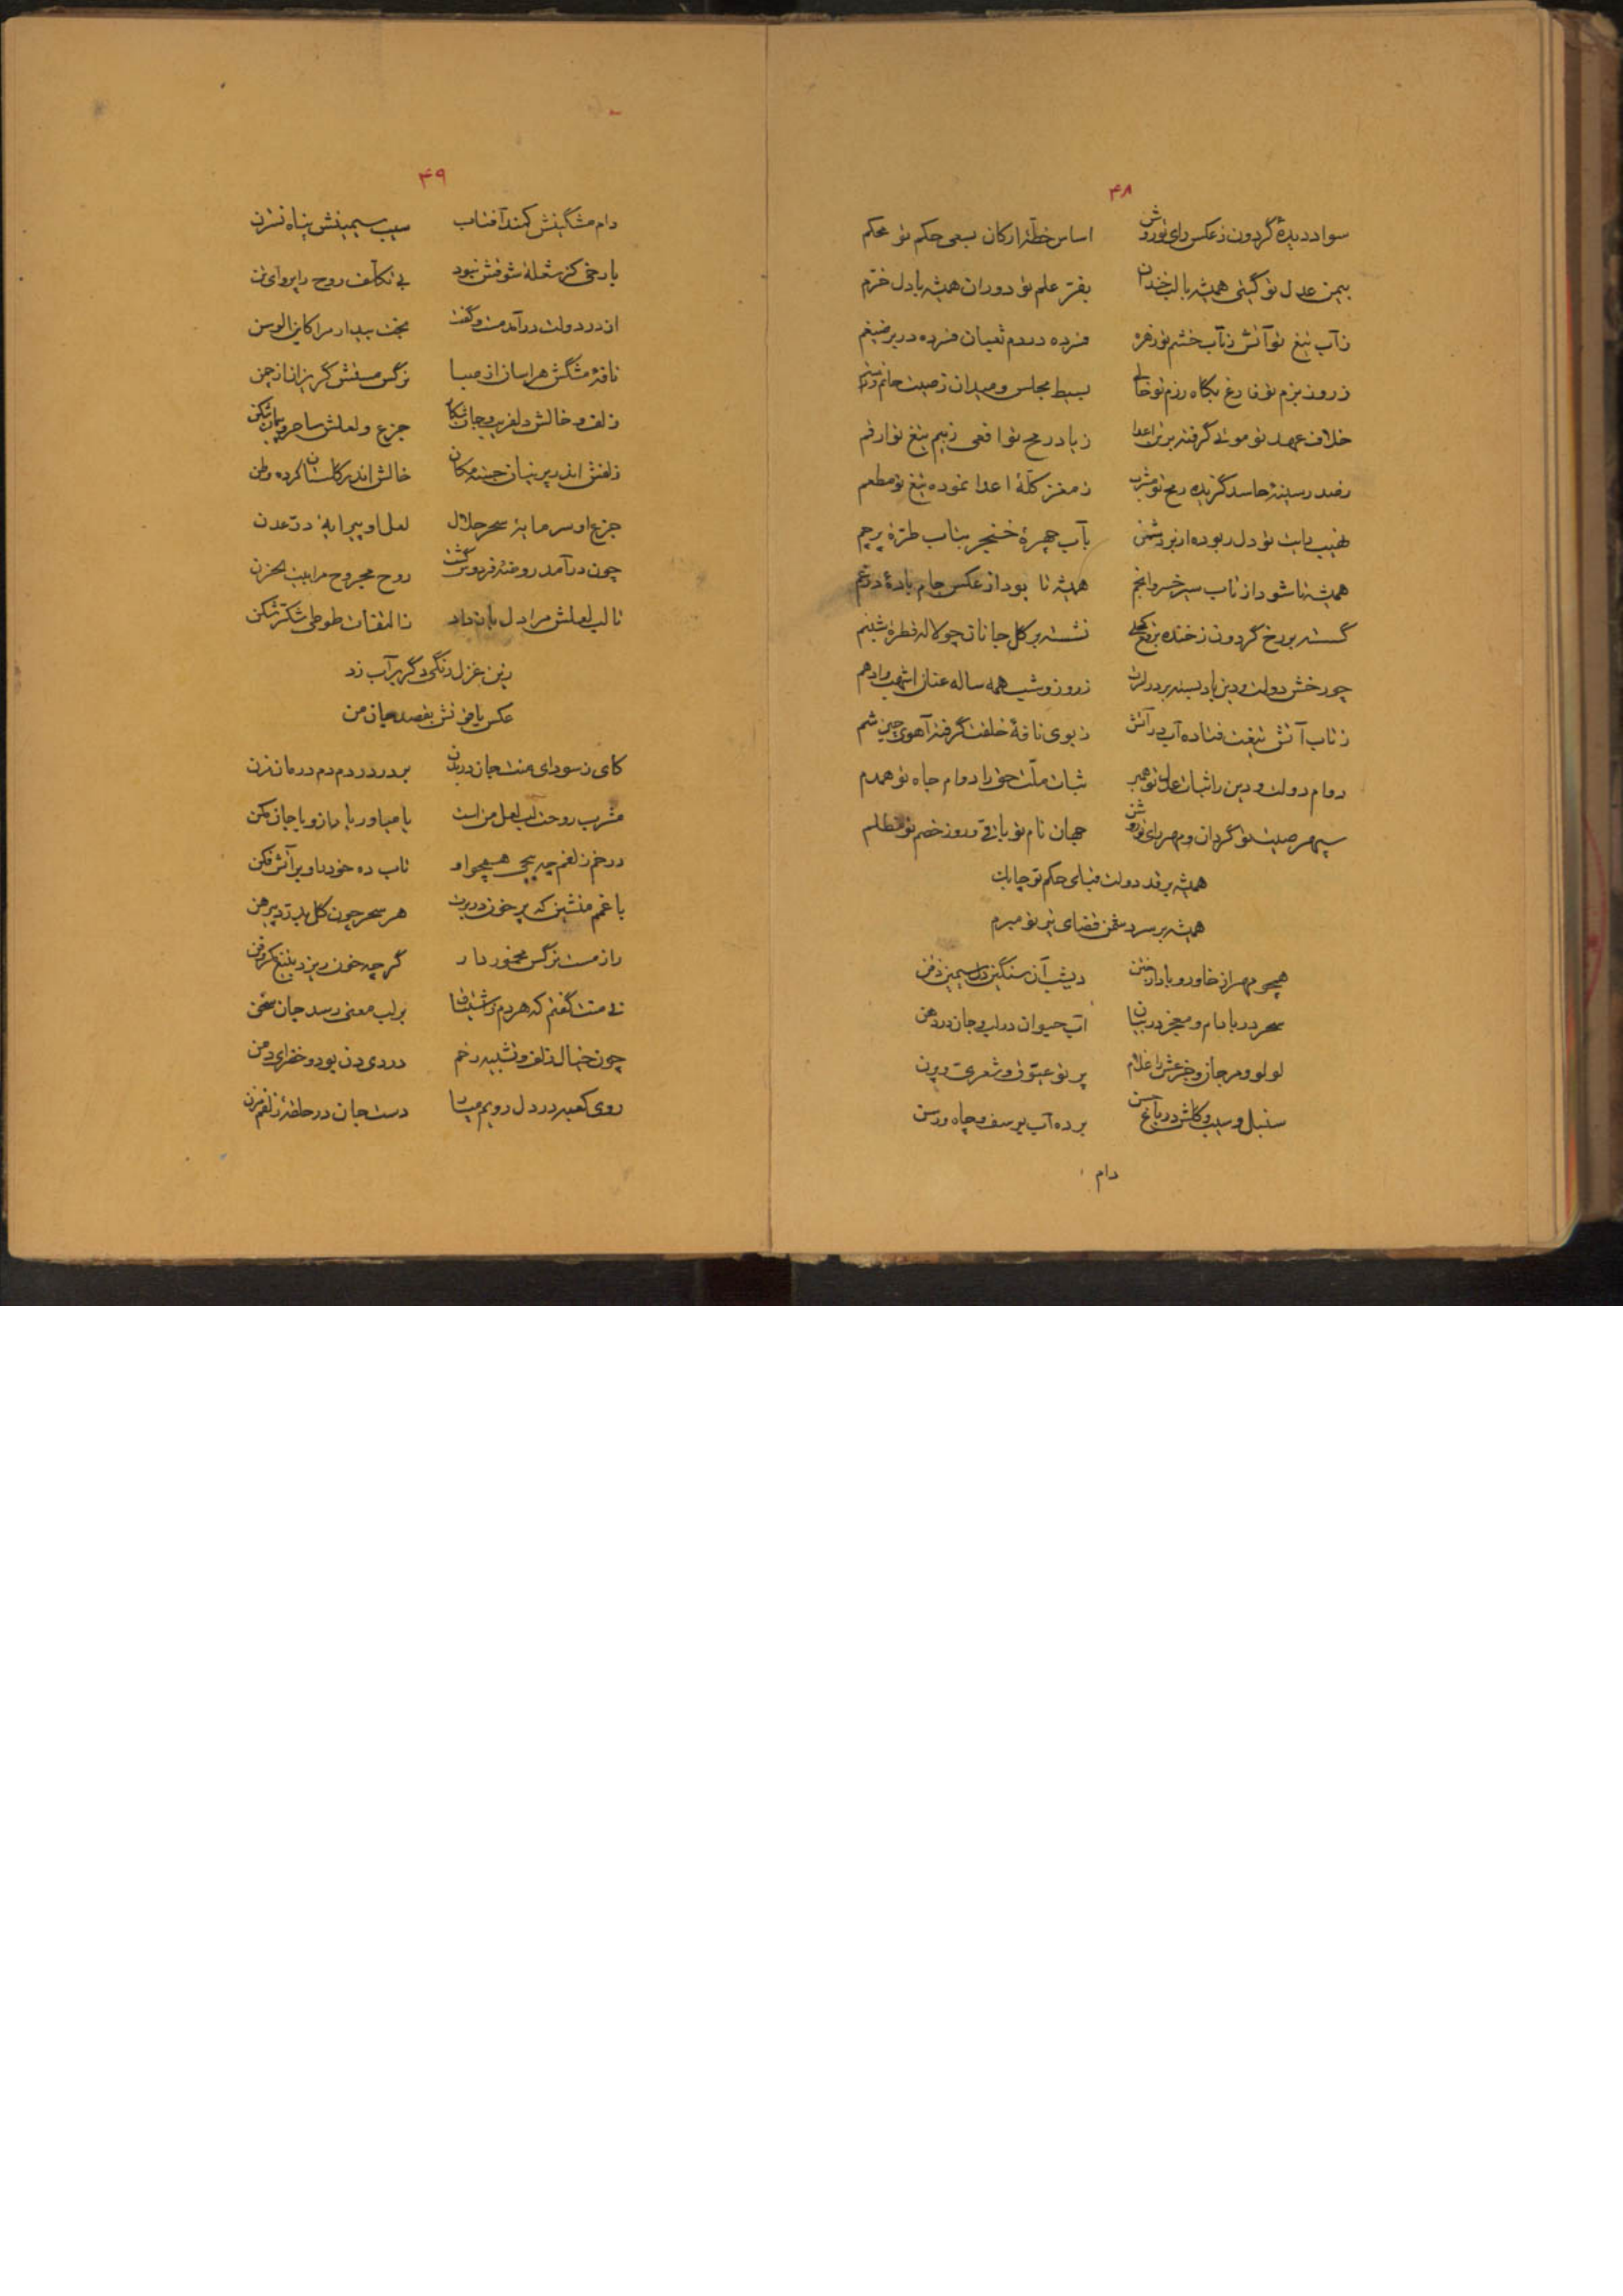 ۴۸
سواد دیدهٔ گردون ز عکس رای تو روشن اساس خطهٔ ارکان بسعی حکم تو محکم
بیمن عدل تو گیتی همیشه با لب خندان بفرّ علم تو دوران همیشه با دل خرّم
ز آب تیغ تو آتش ز تاب خشم تو زهره فسرده در دم ثعبان فسرده در بر ضیغم
ز روز بزم تو فارغ بگاه رزم تو خالی بسیط مجلس و میدان ز صیت حاتم و رستم
خلاف عهد تو موئی گرفته بر تن اعدا ز باد رمح تو افعی ز بیم تیغ تو ارقم
ز صدر سینهٔ حاسد گزیده رمح تو مشرب ز مغز کلّهٔ اعدا نموده تیغ تو مطعم
نهیب بابت تو دل ربوده از بر دشمن بآب چهرهٔ خنجر بتاب طرّهٔ پرچم
همیشه تا شود از تاب سیر خسرو انجم همیشه تا بود از عکس جام بادهٔ درغم
گسسته بر رخ گردون ز خنده نرگس نشسته بر گل جانان چو لاله قطرهٔ شبنم
چو رخش دولت و دین باد بسته بر درلرت ز روز و شب همه ساله عنان اشهب و ادهم
ز تاب آتش تیغت فتاده آب در آتش ز بوی نافهٔ خلقت گرفته آهوی چین شم
دوام دولت و دین را ثبات عدل تو همبر ثبات ملّت حق را دوام جاه تو همدم
سپهر صیت تو گردان و مهر رای تو روشن جهان نام تو باقی و روز خصم تو مظلم
همیشه بر قد دولت قبای حکم تو چابک
همیشه بر سر دشمن قضای تیر تو مبرم
همچو مهر از خاور و باد از ختن دیشب آن سنگین دل سیمین ذقن
سحر در بادام و معجز در بیان آب حیوان در لب و جان در دهن
لولو و مرجان و جزعش را غلام پرتو عیّوق و شعری و پرن
سنبل و سیب و گلش در باغ حسن برده آب یوسف و چاه و رسن
دام
۴۹
دام مشگینش کمند آفتاب سیب سیمینش پناه نسترن
با رخی کز شعلهٔ شوقش نبود بی تکلّف روح را پروای تن
از در دولت درآمد مست و گفت بخت بیدار مرا کاین الوسن
نافهٔ مشگش هراسان از صبا نرگس مستش گریزان از چمن
زلف و خالش دلفریب و جان شکار جزع و لعلش ساحر و پیمان شکن
زلفش اندر پرنیان جسته مکان خالش اندر گلستان کرده وطن
جزع او سرمایهٔ سحر حلال لعل او پیرایهٔ درّ عدن
چون درآمد روضهٔ فردوس گشت روح مجروح مرا بیت الحزن
تا لب لعلش مرا دل باز داد ز التفات طوطی شکّر شکن
زین غزل رنگی دگر بر آب زد
عکس یاقوتش بقصد جان من
کای ز سودای منت جان در بدن بر در دردم دم درمان مزن
مشرب روحت لب لعل من است یا میاور یا مازو یا جان مکن
در خم زلفم چه پیچی همچو او تاب ده خود را و بر آتش فکن
با غمم منشین که پر خون در برت هر سحر چون گل بدرّد پیرهن
راز مست نرگس مخمور دار گرچه خون ریزد بتیغ مکر و فن
نی منت گفتم که هردم ز اشتیاق بر لب معنی رسد جان سخن
چون خیال زلف و تشبیه رخم دردی دن بود و خضرای دمن
روی کعبه در دل رویم میتا دست جان در حلقهٔ زلفم مزن